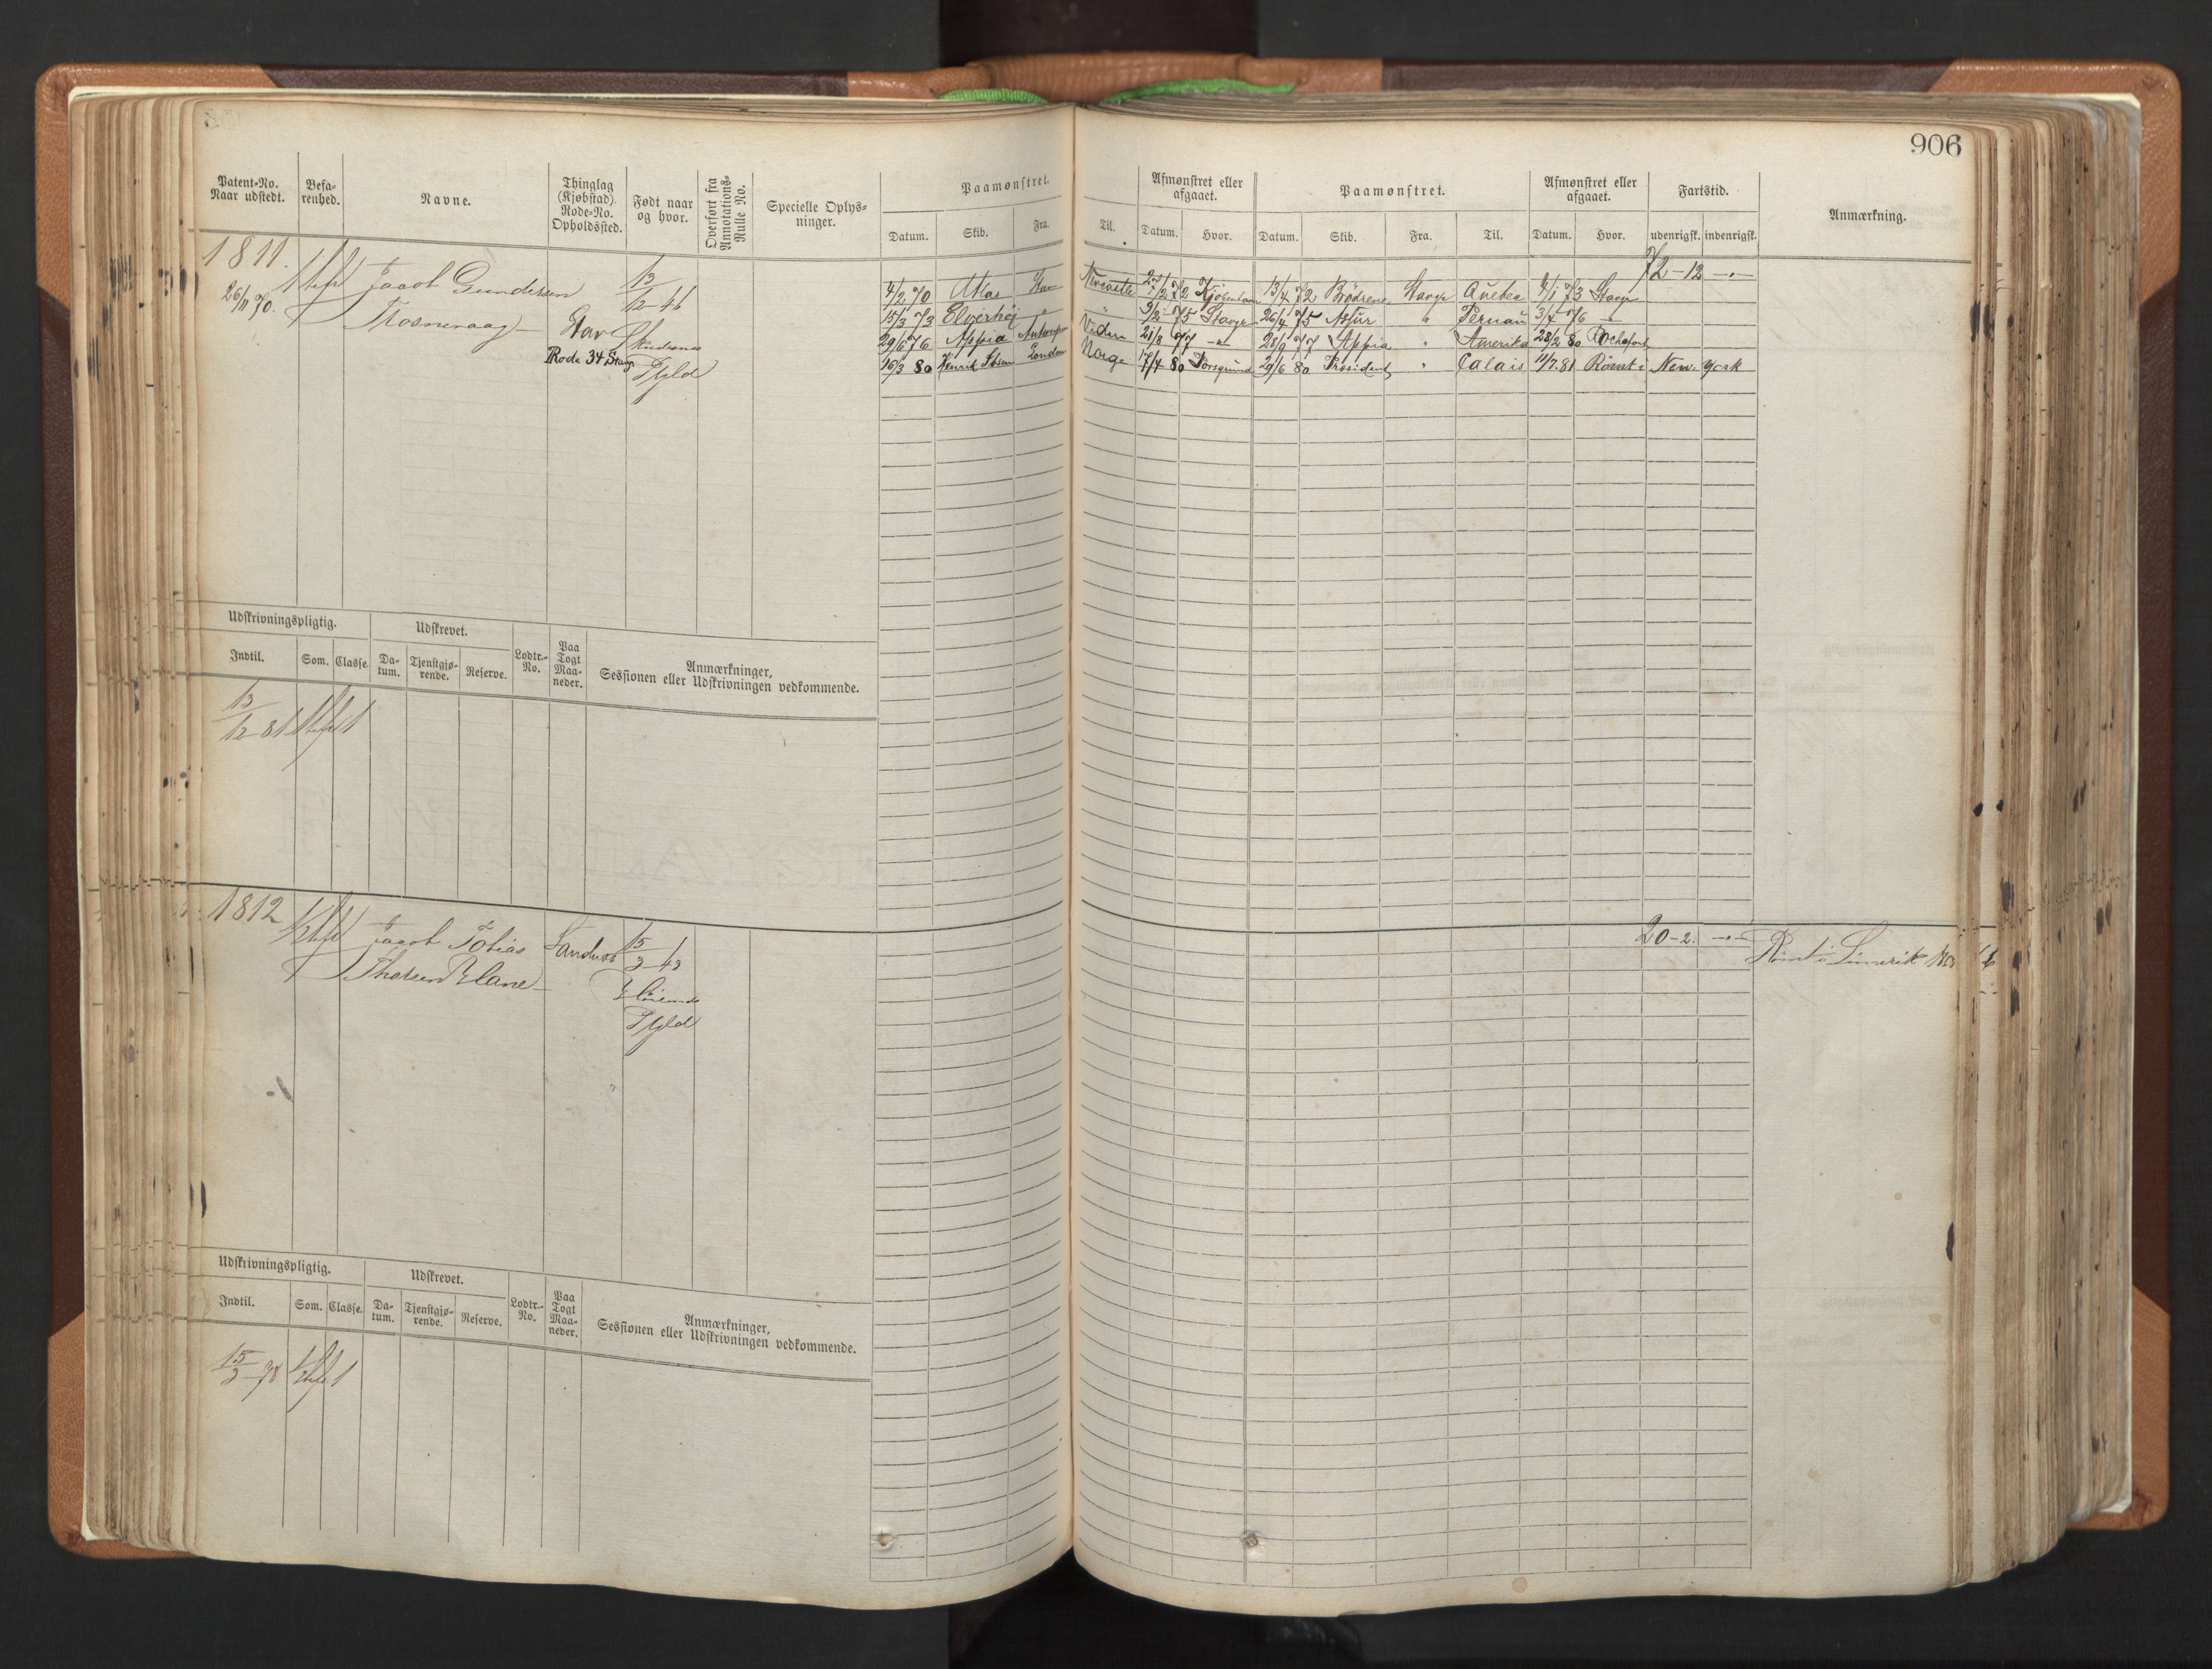 906
Patent-No. Naar udstedt.
Befa-
renhed.
Navne.
Thinglag
(Kjøbstad).
Rode-No.
Opholdssted.
Født naar
og hvor.
Overført fra
Annotations-
Rulle No.
Specielle Oplys-
ninger.
Paamønstret.
Datum. Skib. Fra. Til.
Afmønstret eller
afgaaet.
Datum. Hvor.
Paamønstret.
Datum. Skib. Fra. Til.
Afmønstret eller
afgaaet.
Datum. Hvor.
Fartstid.
udenrigsk. indenrigsk.
Anmærkning.
1811.
26/11 70.
Jacob Gundersen
Stav
Rode 34 Stavgr
13/12-46
Skudenæs
Pgld
72-12
4/2 70 Atlas Stav
2/2 72 Kjøbenhavn 13/4 72 Brødrene Stavgr Quebec 4/1 73 Stavgr
15/3 73 Elverhøj "
3/2 75 Stavgr 26/4 75 Astur " Pernau 3/4 76 "
29/6 76 Appia Antwerpen
21/8 77 " 28/9 77 Appia " Amerika 28/2 80 Rochefort
16/3 80 Henrik Ibsen London Norge 17/4 80 Porsgrund 29/6 80 President " Calais 11/7.81 Rømt i New York
Udskrivningspligtig.
Indtil. Som. Classe.
Udskrevet.
Da-
tum.
Tjenstgjø-
rende.
Reserve.
Lodtr.-
No.
Paa
Togt
Maa-
neder.
Anmærkninger,
Sessionen eller Udskrivningen vedkommende.
13/12-81 1
1812
Jacob Tobias
Thorsen Plane
Sandnæs
15/3-43
Pgld
20-2.
Rømt i Limerik
Udskrivningspligtig.
Indtil. Som. Classe.
Udskrevet.
Da-
tum.
Tjenstgjø-
rende.
Reserve.
Lodtr.-
No.
Paa
Togt
Maa-
neder.
Anmærkninger,
Sessionen eller Udskrivningen vedkommende.
15/3-78 1